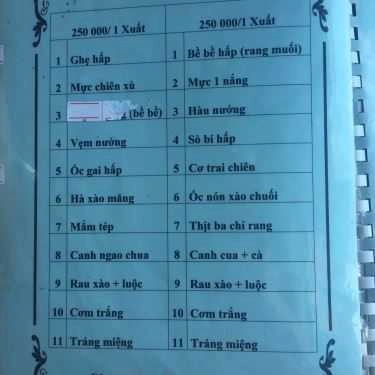 250 000/ 1 Xuất
1 Ghẹ hấp
2 Mực chiên xù
3 (bề bề)
4 Vẹm nướng
5 Ốc gai hấp
6 Hà xào măng
7 Mắm tép
8 Canh ngao chua
9 Rau xào + luộc
10 Cơm trắng
11 Tráng miệng
250 000/1 Xuất
1 Bề bề hấp (rang muối)
2 Mực 1 nắng
3 Hàu nướng
4 Sò bi hấp
5 Cơ trai chiên
6 Ốc nón xào chuối
7 Thịt ba chỉ rang
8 Canh cua + cà
9 Rau xào + luộc
10 Cơm trắng
11 Tráng miệng